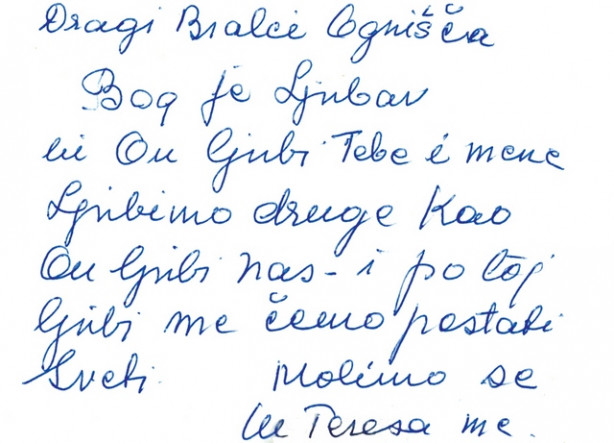 Dragi Bralci Ognišča
Bog je Ljubav
in On ljubi Tebe i mene
Ljubimo druge kao
On ljubi nas - i po toj
ljubi me ćemo postati
Sveti. Molimo se
M Teresa mc.